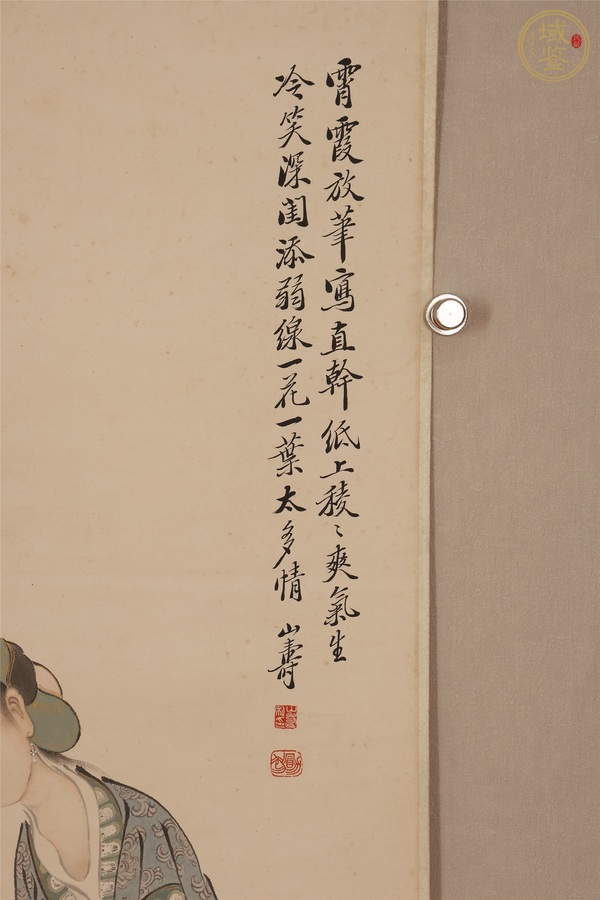 霄霞放筆寫直幹紙上稜〻爽氣生
冷笑深閨添弱線一花一葉太多情
山壽
域鉴